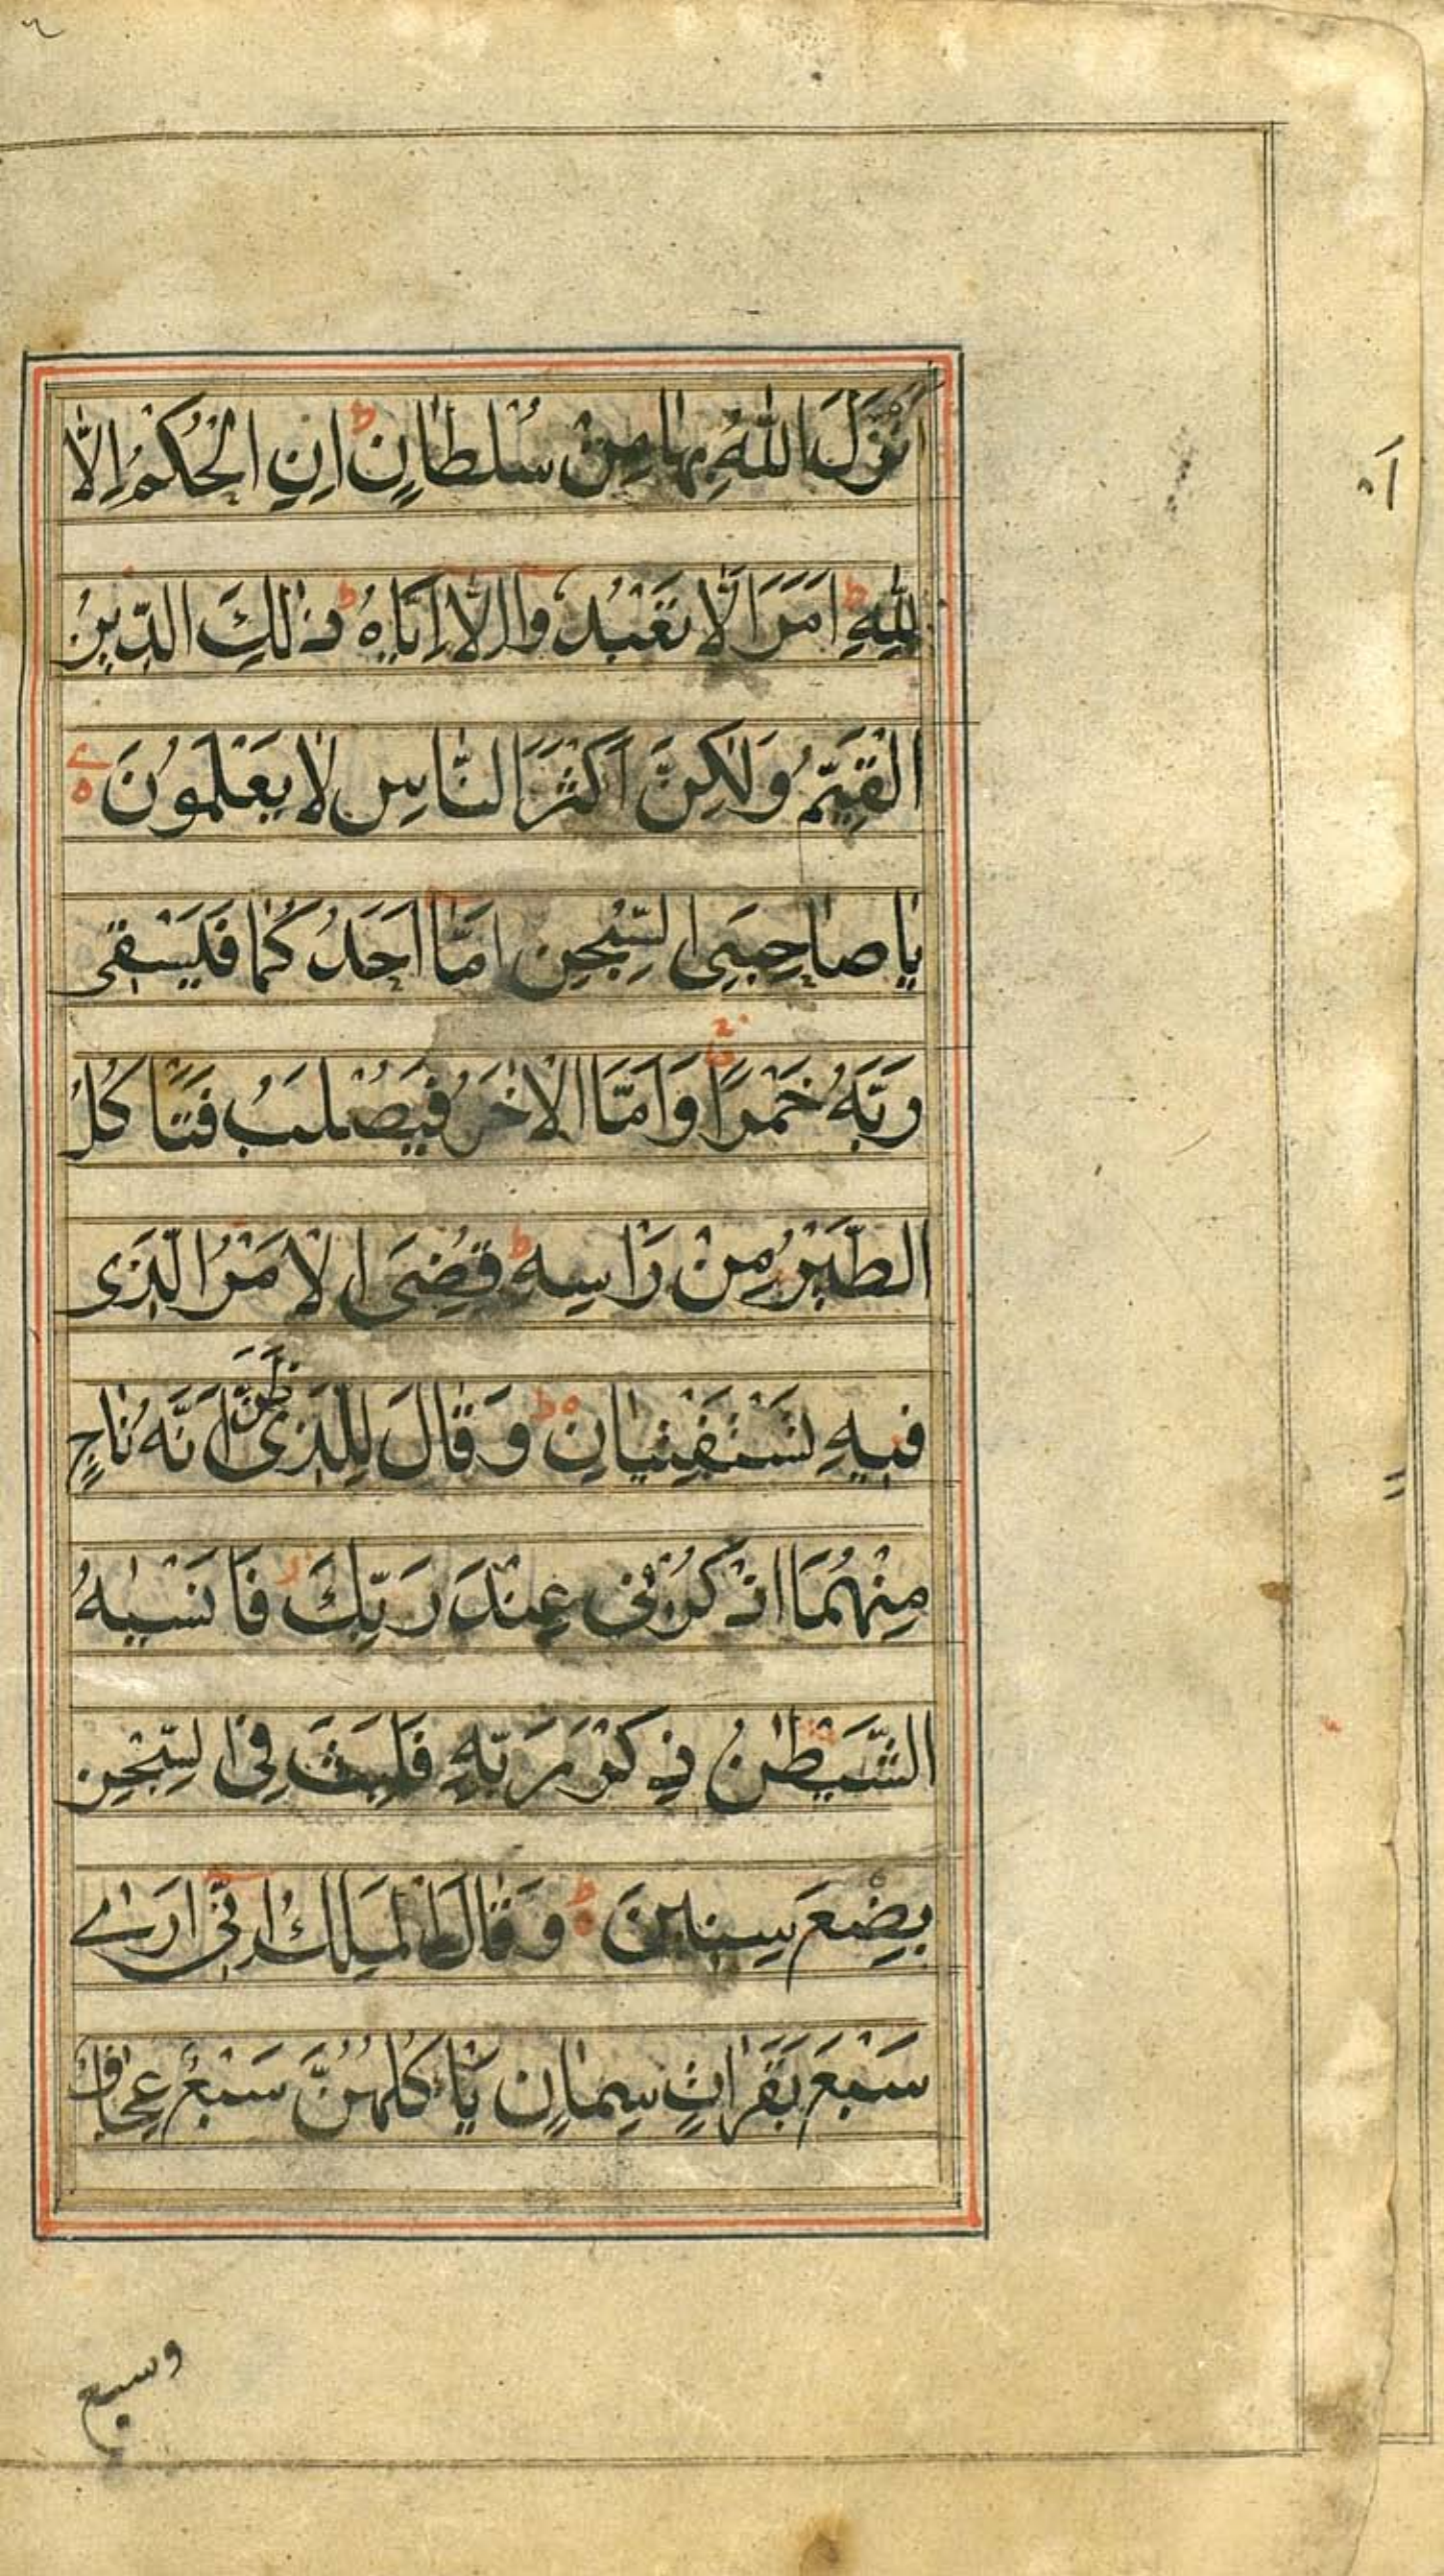 اَنْزَلَ اللّٰهُ بِهٰا مِنْ سُلْطٰانٍ ط اِنِ الْحُكْمُ اِلّٰا
لِلّٰهِ ط اَمَرَ اَلّٰا تَعْبُدُوا اِلّٰا اِيّٰاهُ ط ذٰلِكَ الدّينُ
الْقَيِّمُ وَلٰكِنَّ اَكْثَرَ النّٰاسِ لٰا يَعْلَمُونَ
يٰا صٰاحِبَىِ السِّجْنِ اَمّٰا اَحَدُكُمٰا فَيَسْقى
رَبَّهُ خَمْرًا وَاَمَّا الْاٰخَرُ فَيُصْلَبُ فَتَاْكُلُ
الطَّيْرُ مِنْ رَاْسِهِ ط قُضِىَ الْاَمْرُ الَّذى
فيهِ تَسْتَفْتِيٰانِ ط وَقٰالَ لِلَّذى ظَنَّ اَنَّهُ نٰاجٍ
مِنْهُمَا اذْكُرْنى عِنْدَ رَبِّكَ ز فَاَنْسٰيهُ
الشَّيْطٰنُ ذِكْرَ رَبِّهِ فَلَبِثَ فِى السِّجْنِ
بِضْعَ سِنينَ ط وَقٰالَ الْمَلِكُ اِنّى اَرٰى
سَبْعَ بَقَرٰاتٍ سِمٰانٍ يَاْكُلُهُنَّ سَبْعٌ عِجٰافٌ
وسبع